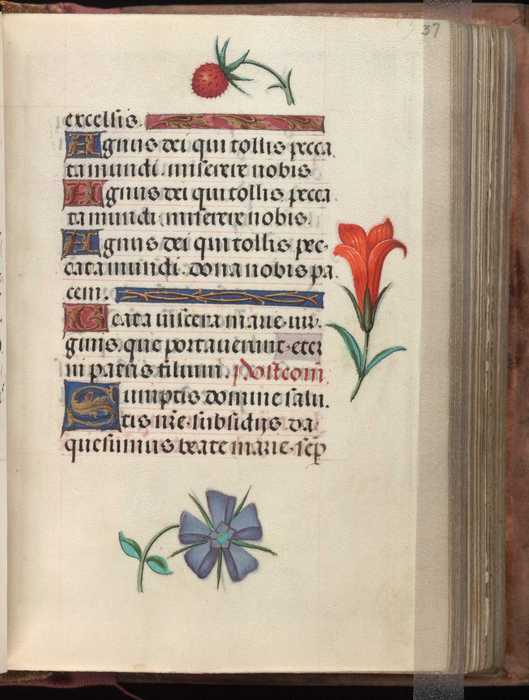 37
excelsis.
Agnus dei qui tollis pecca
ta mundi. miserere nobis
Agnus dei qui tollis pecca
ta mundi. miserere nobis.
Agnus dei qui tollis pec-
cata mundi. dona nobis pa
cem.
Beata viscera marie vir-
ginis, que portaverunt eter
ni patris filium. Postcom
Sumptis domine salu-
tis nr̄e subsidijs da
quesumus beate marie semp